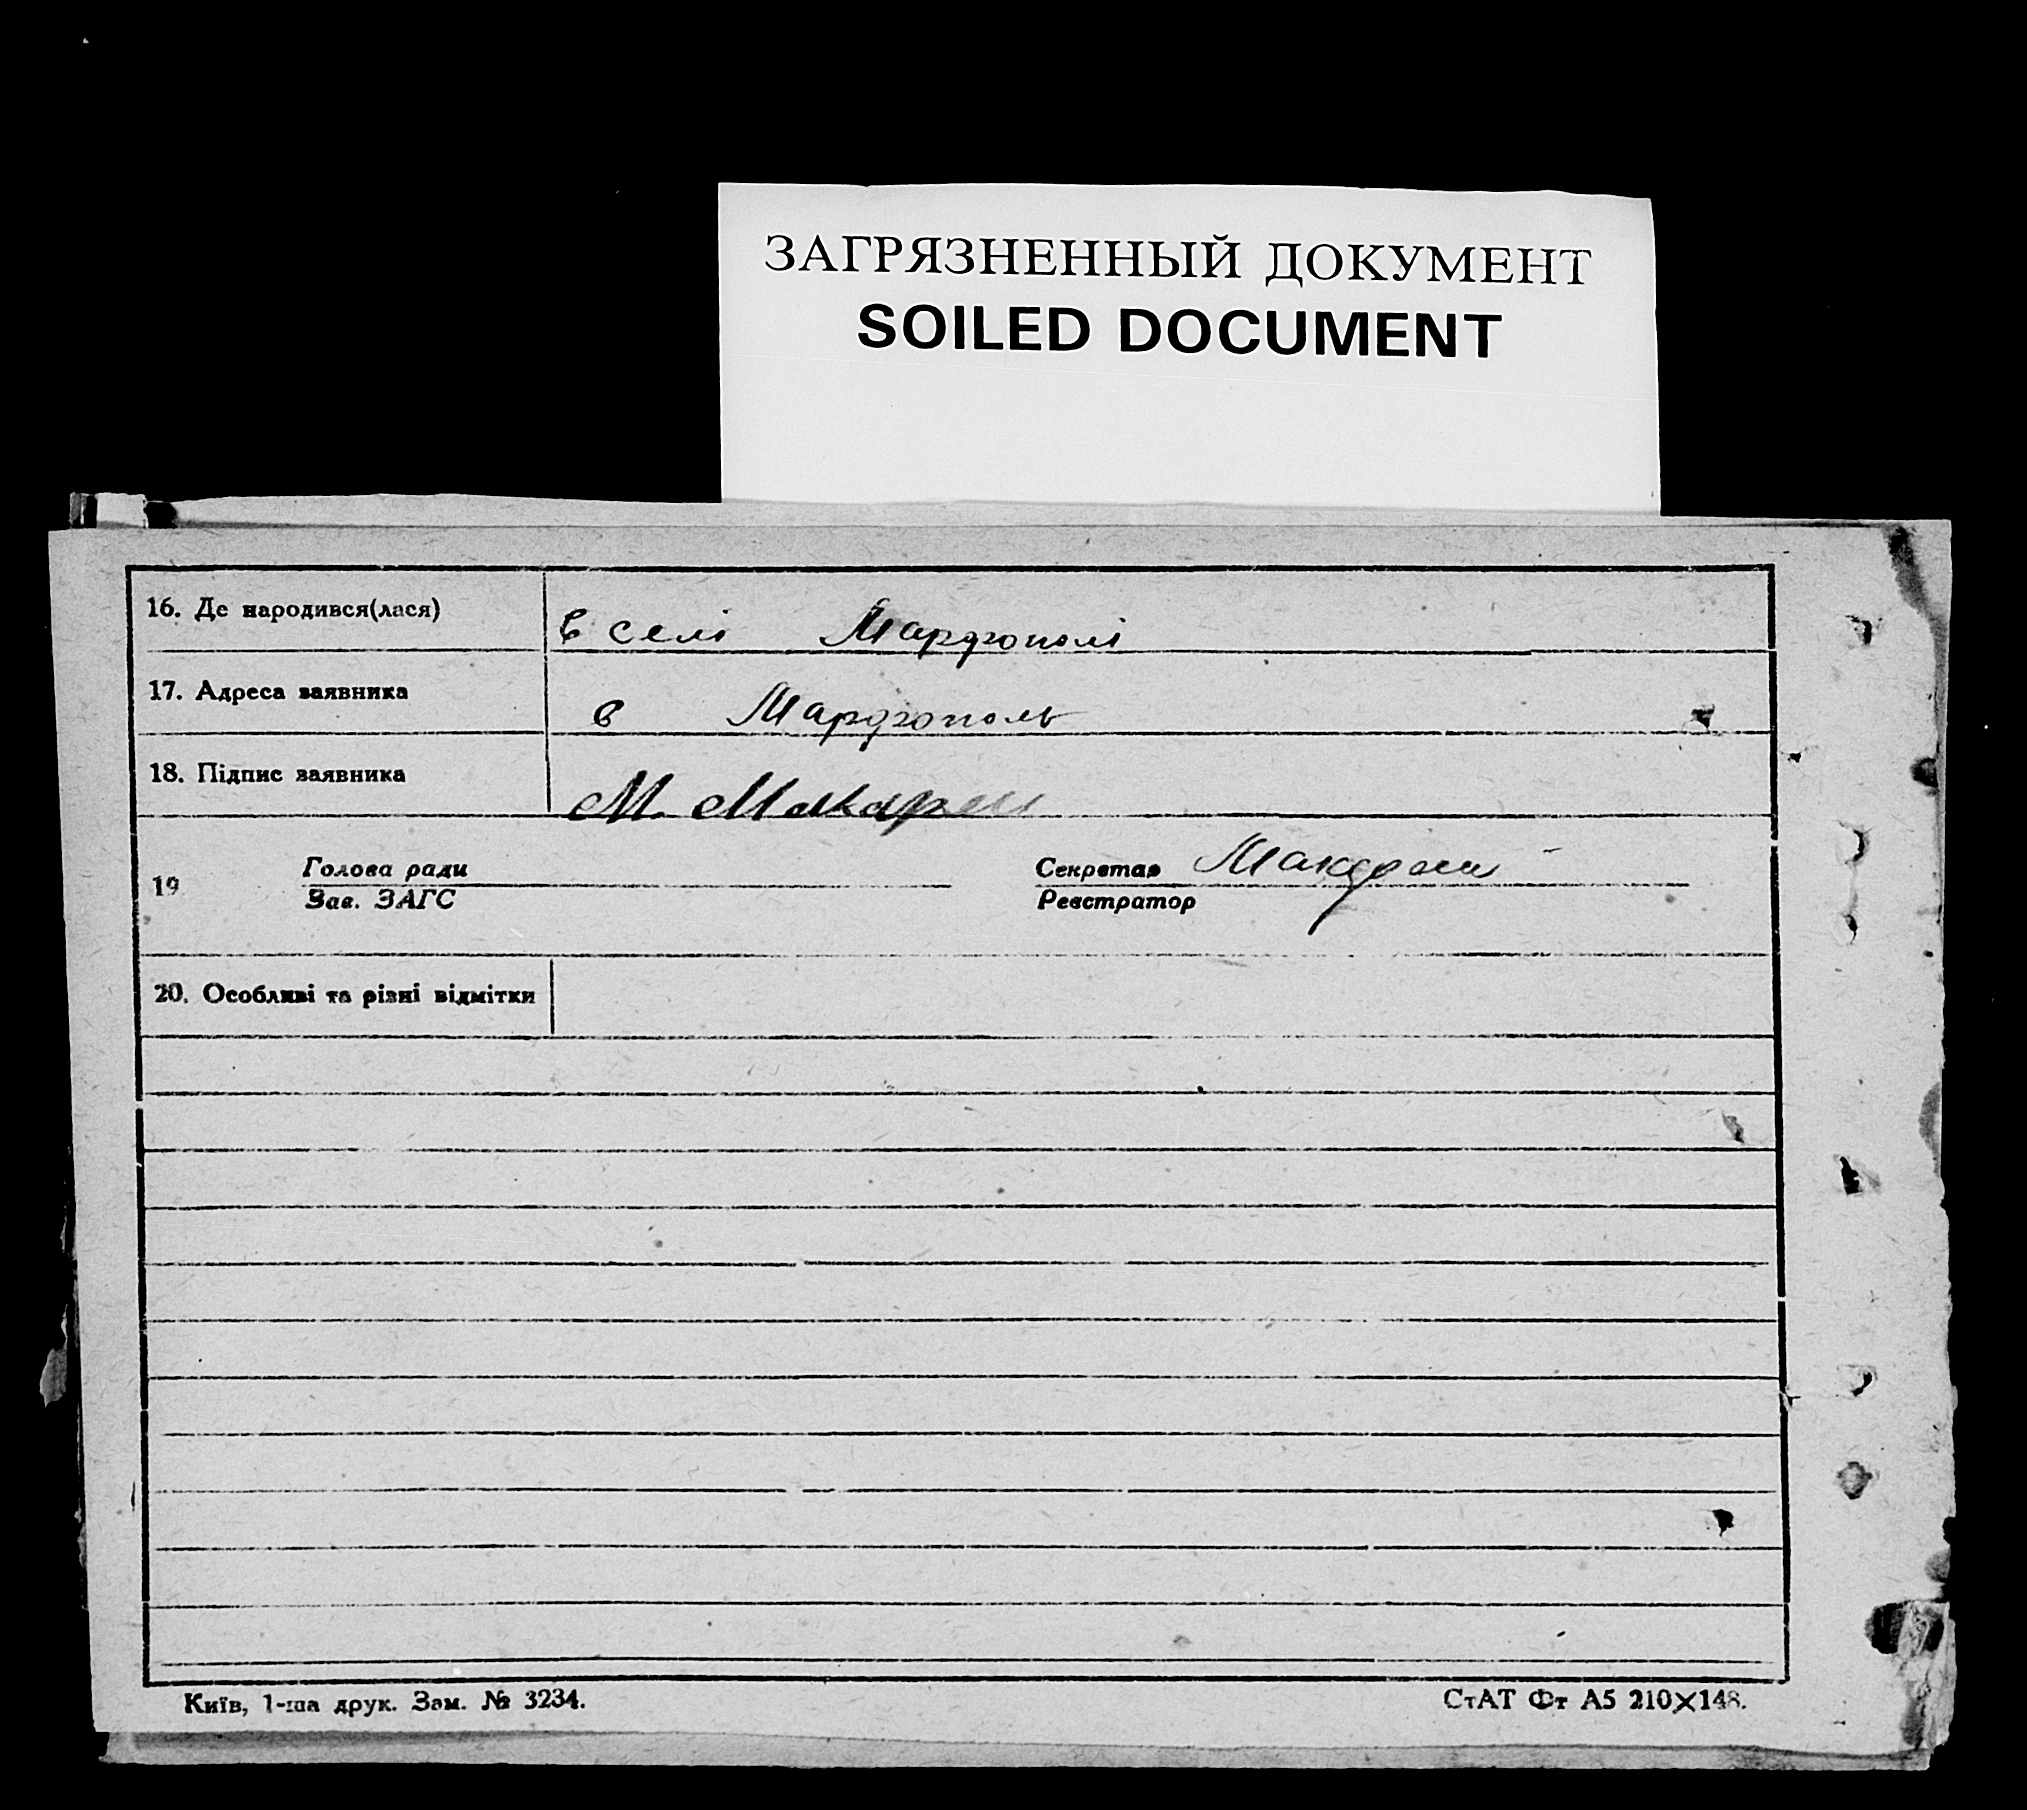 ЗАГРЯЗНЕННЫЙ ДОКУМЕНТ
SOILED DOCUMENT
16. Де народився(лася) в селі Марфополі
17. Адреса заявника в Марфополь
18. Підпис заявника М. Макарен
19 Голова ради Секретар
Зав. ЗАГС Реєстратор
20. Особливі та різні відмітки
Київ, 1-ша друк. Зам. № 3234. СтАТ Фт А5 210×148.